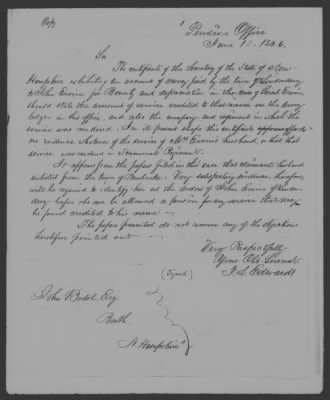 Copy
Pension Office
June 12. 1846.
Sir
The certificate of the Secretary of the State of New
Hampshire exhibiting an account of money paid by the town of Londonderry
to John Ervine for Bounty and depreciation in the army of
should state the amount of service credited to that name on the
in his office, and also the company and regiment in which the
service was rendered. In its present shape this certificate affords
no evidence of the service of Mrs Ervine's husband, or that
service was rendered in Regiment.
It appears from the papers filed in this case that claimants husband
enlisted from the town of Very satisfactory evidence, therefore,
will be required to identify her as the widow of John Ervine of London
derry before she can be allowed a pension for any service that may
be found credited to his name
The papers presented do not remove any of the objections
heretofore pointed out
Very Respectfully
Your Obt Servant
(Signed) J. L. Edwards
John Bedel, Esq
Bath
N. Hampshire